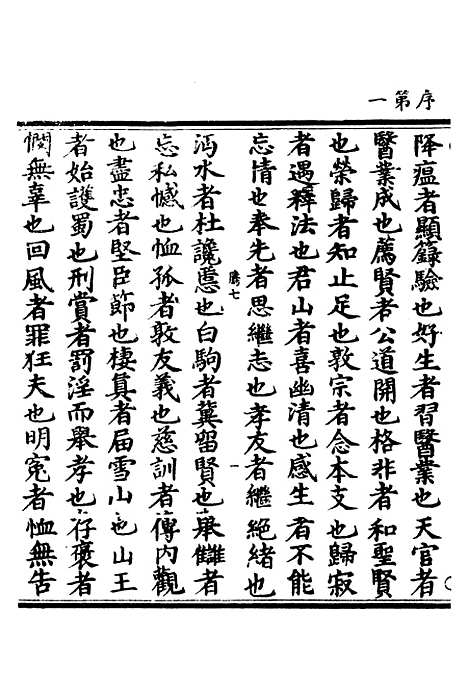 序第一
降瘟者顯籙驗也好生者習醫業也天官者
醫業成也薦賢者公道開也格非者和聖賢
也榮歸者知止足也敦宗者念本支也歸寂
者遇釋法也君山者喜幽清也感生者不能
忘情也奉先者思繼志也孝友者繼絕緒也
勝七
沔水者杜讒慝也白駒者冀留賢也舉讎者
忘私憾也恤孤者敦友義也慈訓者傳内觀
也盡忠者堅臣節也棲真者届雪山也山王
者始護蜀也刑賞者罰淫而舉孝也存褒者
憫無辜也回風者罪狂夫也明寃者恤無告